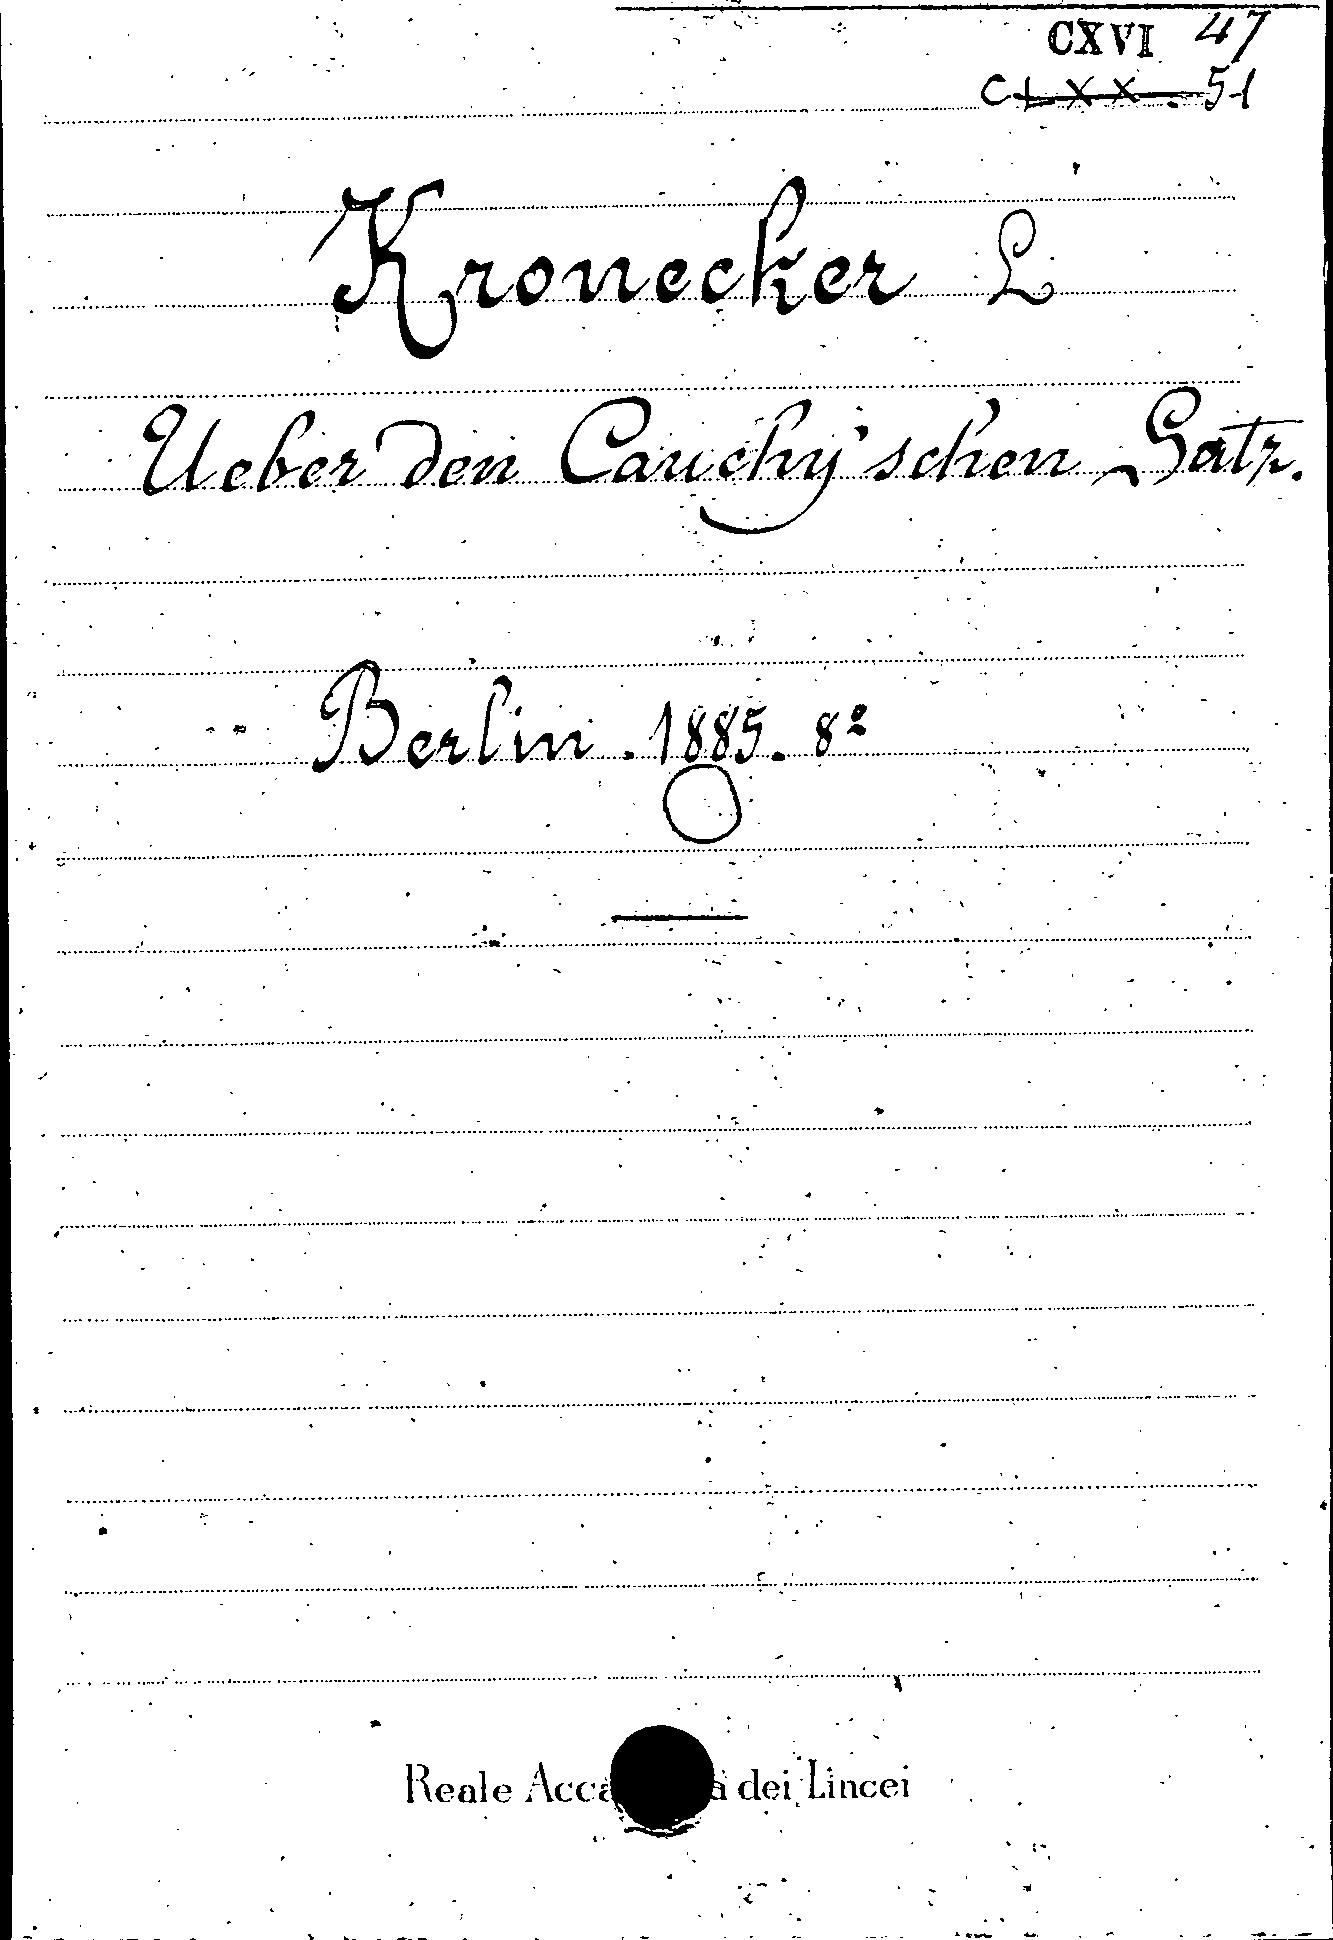 CXVI 47
CLXX. 51
Kronecker L
Ueber den Cauchy'schen Satz.
Berlin. 1885. 8º
Reale Acca a dei Lincei